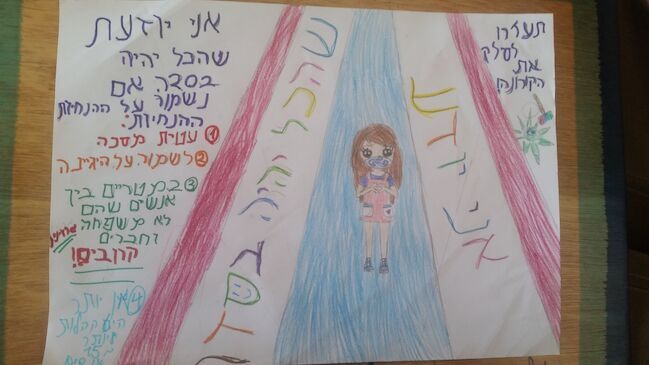 תעזרו
לסלק
את
הקורונה!
אני יודעת
שהכל יהיה בסדר
אני יודעת
שהכל יהיה
בסדר אם
נשמור על ההנחיות
ההנחיות:
1 עטית מסכה
2 לשמור על היגיינה
3 2 מטריים בין
אנשים שהם
לא משפחה
וחברים
קרובים!
4 אין יותר
יותר